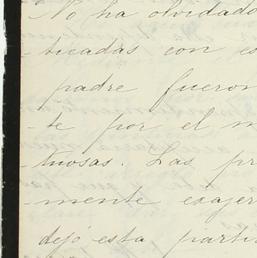 No ha olvidado
ticadas con es
padre fueron
te por el m
tuosas. Las pr
mente exajer
dejó esta parti